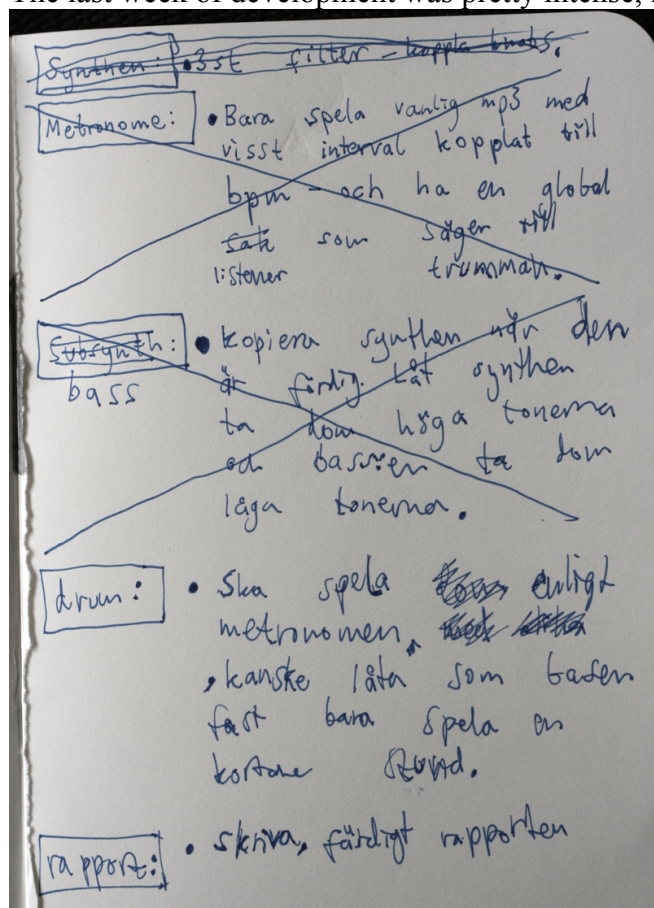 The last week of development was pretty intense,
Synthen: • 3st filter - koppla knobs.
Metronome: • Bara spela vanlig mp3 med
visst interval kopplat till
bpm - och ha en global
sak som säger till
listener trumman.
Subsynth: • kopiera synthen när den
bass är färdig. Låt synthen
ta dom höga tonerna
och bassen ta dom
låga tonerna.
drum: • Ska spela enligt
metronomen,
, kanske låta som basen
fast bara spela en
kortare stund.
rapport: • skriva, färdigt rapporten